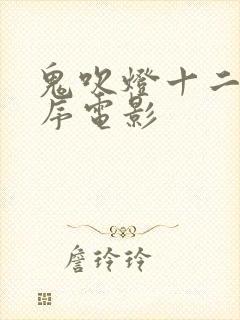 鬼吹燈十二
序電影
詹玲玲